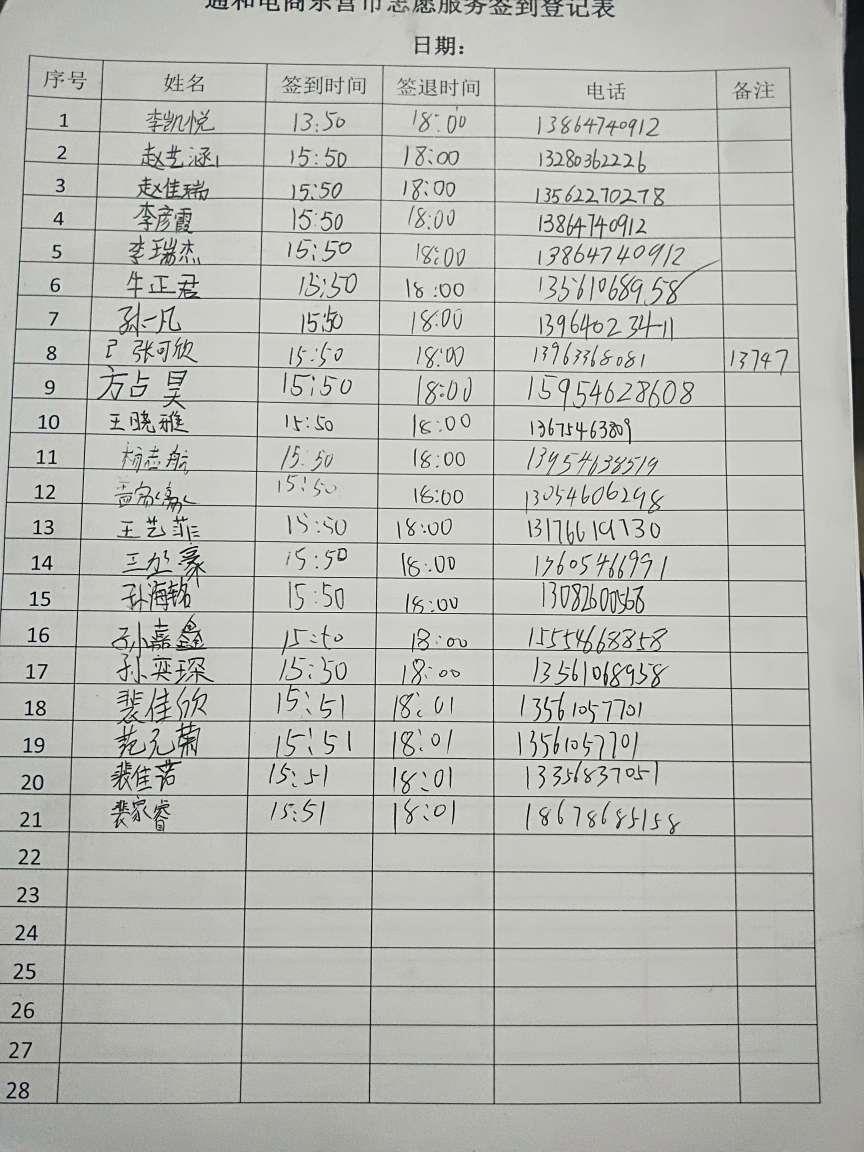 通和电商东营市志愿服务签到登记表
日期：
序号 姓名 签到时间 签退时间 电话 备注
1 李凯悦 13:50 18:00 13864740912
2 赵艺涵 15:50 18:00 13280362226
3 赵佳瑞 15:50 18:00 13562270278
4 李彦霞 15:50 18:00 13864740912
5 李瑞杰 15:50 18:00 13864740912
6 牛正君 15:50 18:00 13561068958
7 孙一凡 15:50 18:00 13964023411
8 张可欣 15:50 18:00 13963368081 13747
9 方占昊 15:50 18:00 15954628608
10 王晓雅 15:50 18:00 13675463809
11 杨志航 15:50 18:00 13954638519
12 15:50 18:00 13054606298
13 王艺菲 15:50 18:00 13176619730
14 15:50 18:00 13605466991
15 孙海铭 15:50 18:00 13082600568
16 孙嘉鑫 15:50 18:00 15554668858
17 孙奕琛 15:50 18:00 13561068958
18 裴佳欣 15:51 18:01 13561057701
19 范元菊 15:51 18:01 13561057701
20 裴佳诺 15:51 18:01 13356837051
21 裴家睿 15:51 18:01 18678685158
22
23
24
25
26
27
28